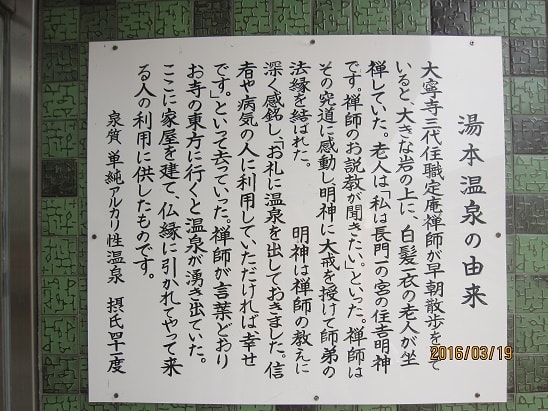 湯本温泉の由来
大寧寺三代住職定庵禅師が早朝散歩をして
いると、大きな岩の上に、白髪一衣の老人が坐
禅していた。老人は「私は長門一の宮の住吉明神
です。禅師のお説教が聞きたい。」といった。禅師は
その究道に感動し明神に大戒を授けて師弟の
法縁を結ばれた。 明神は禅師の教えに
深く感銘し「お礼に温泉を出しておきました。信
者や病気の人に利用していただければ、幸せ
です。」といって去っていった。禅師が言葉どおり
お寺の東方に行くと温泉が湧き出ていた。
ここに家屋を建て、仏縁に引かれてやって来
る人の利用に供したものです。
泉質 単純アルカリ性温泉 摂氏四十一度
2016/03/19